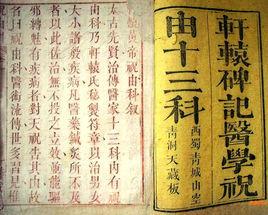 軒轅碑記醫學祝
由十三科
西蜀青城山空
青洞天藏板
黃帝祝由科敘
太古先賢治傳醫家十三科內有祝
由科乃軒轅氏秘製符章以治男女
大小諸般疾病凡醫藥鍼灸所不及
者以此佐治無不投之立效並能驅
邪縛魅有疾病對天祝告其由故
曰祝由科醫術流傳世多